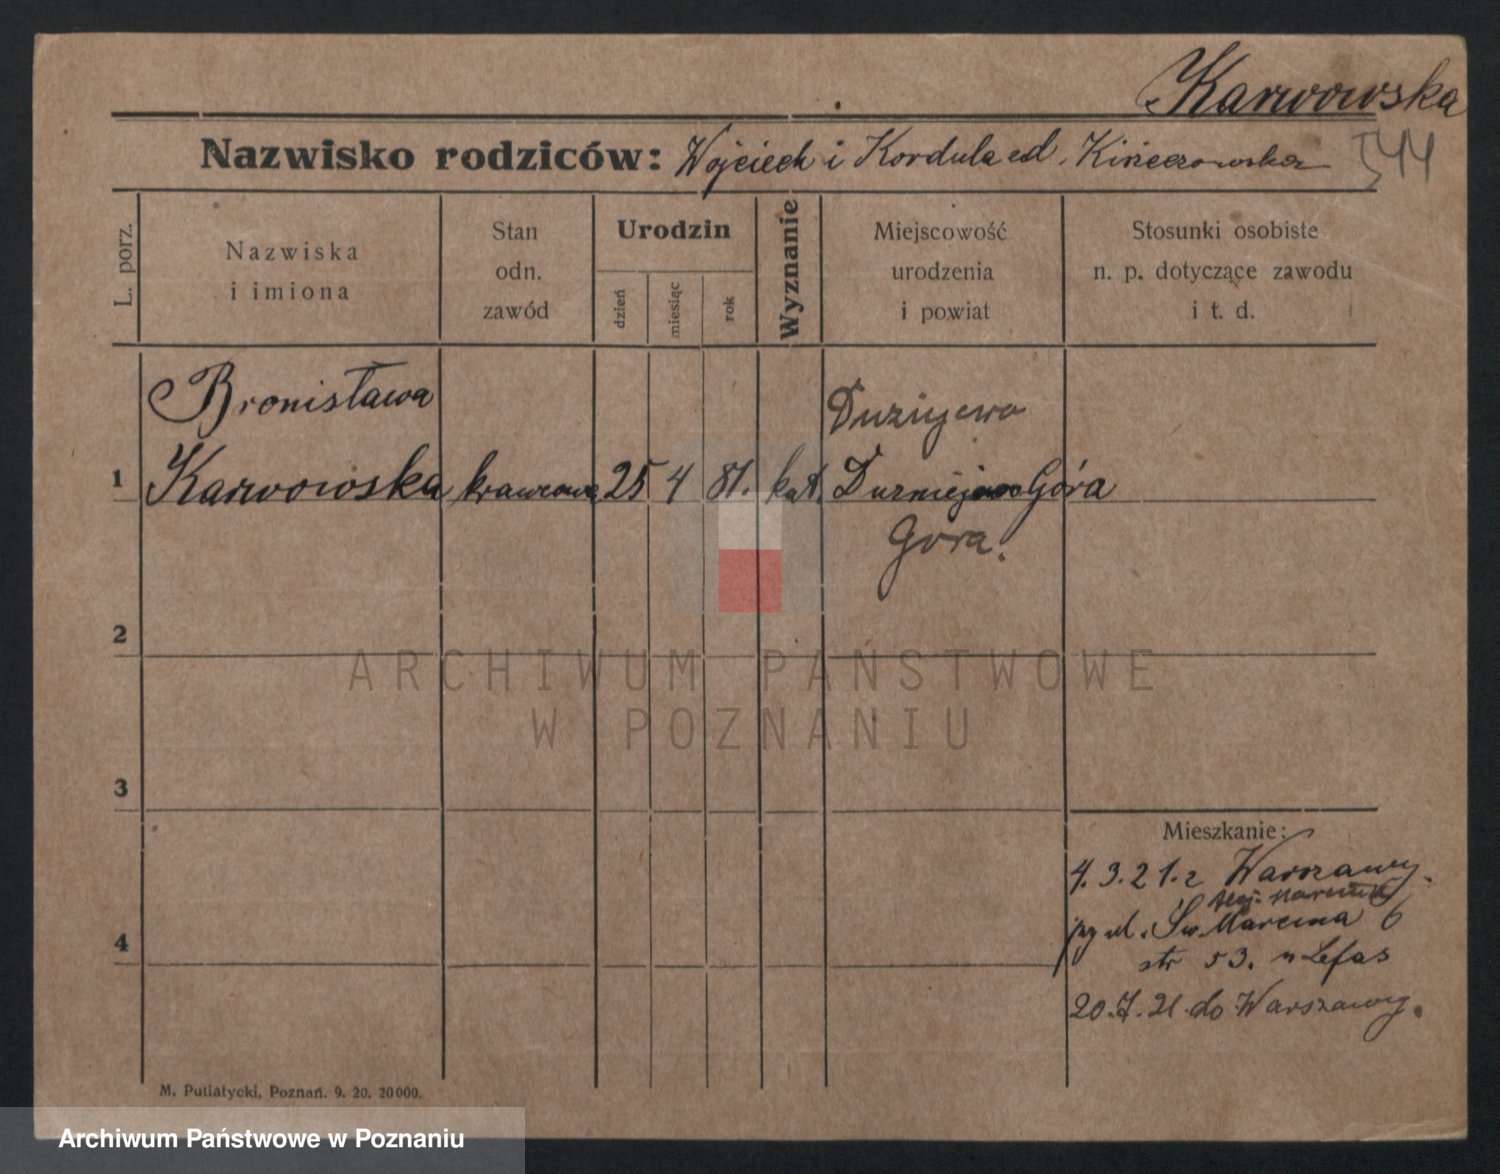 Karwowska
Nazwisko rodziców: Wojciech i Kordula
544
L. porz.
Nazwiska
i imiona
Stan
odn.
zawód
Urodzin
dzień
miesiąc
rok
Wyznanie
Miejscowość
urodzenia
i powiat
Stosunki osobiste
n. p. dotyczące zawodu
i t. d.
Bronisława
1 Karwowska krawcowa 25 4 81. kat. Góra
Góra.
2
3
4
Mieszkanie:
4. 3. 21. z Warszawy.
ul. Św. Marcina 6
str 53. u Lefas
20. 7. 21 do Warszawy.
M. Putiatycki, Poznań. 9. 20. 20000.
ARCHIWUM PAŃSTWOWE
W POZNANIU
Archiwum Państwowe w Poznaniu